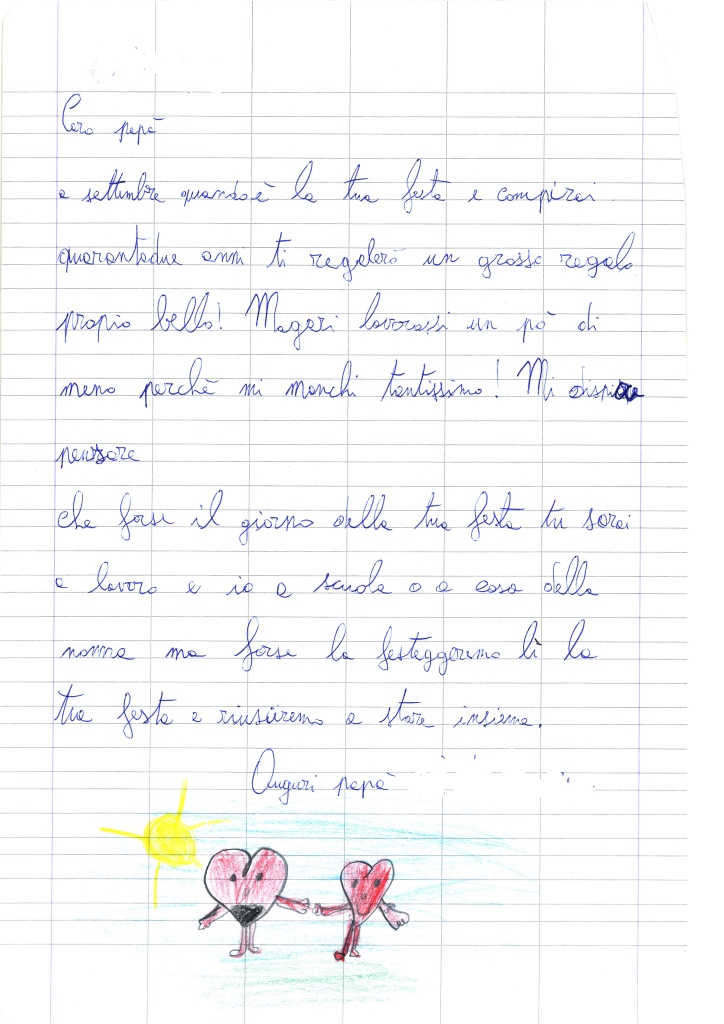 Caro papà
a settembre quando è la tua festa e compirai
quarantadue anni ti regalerò un grosso regalo
proprio bello! Magari lavorassi un pò di
meno perchè mi manchi tantissimo! Mi dispiace
pensare
che forse il giorno della tua festa tu sarai
a lavoro e io a scuola o a casa della
nonna ma forse la festeggeremo lì la
tua festa e riusiremo a stare insieme.
Auguri papà